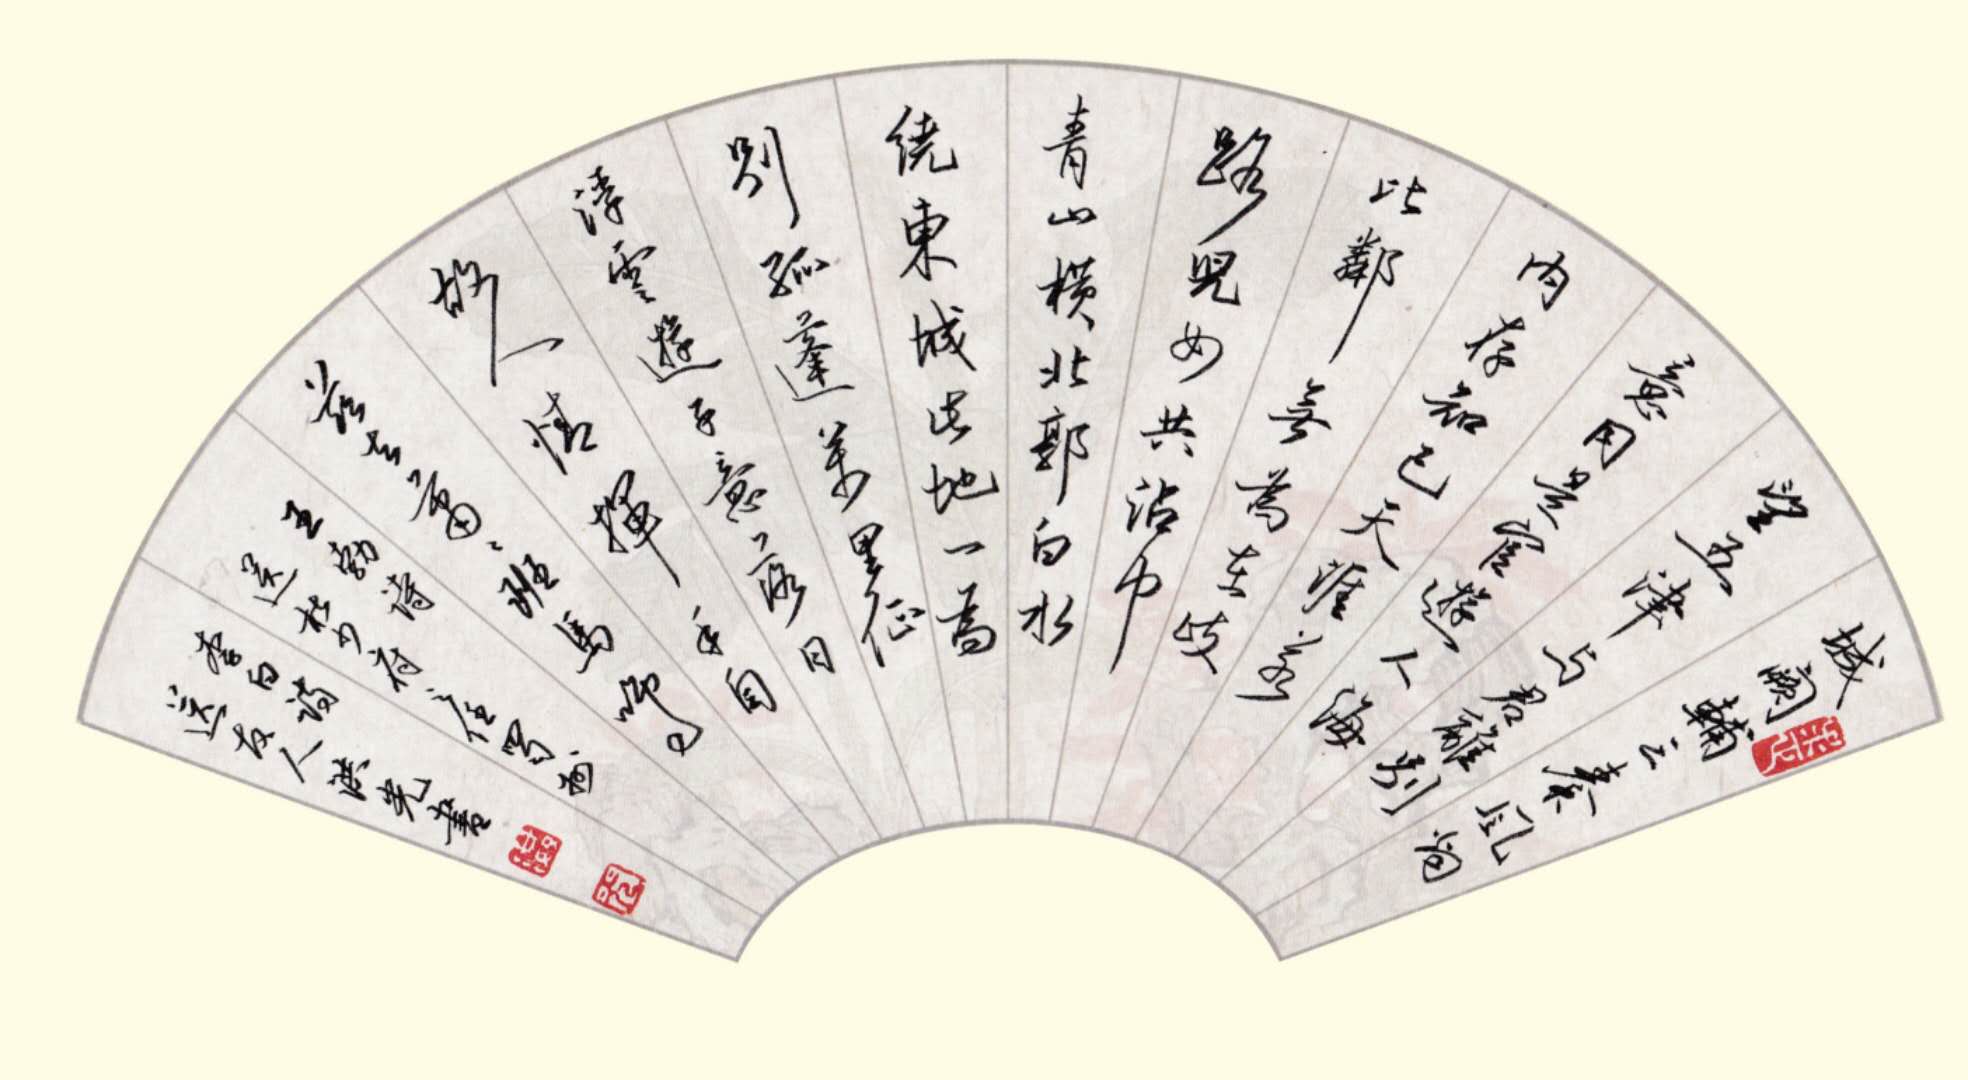 城闕輔三秦風烟
望五津与君離別
意同是宦遊人海
内存知己天涯若
比鄰無為在歧
路兒女共沾巾
青山橫北郭白水
繞東城此地一為
別孤蓬萬里征
浮雲遊子意落日
故人情揮手自
茲去蕭々班馬鳴
王勃詩
送杜少府之任蜀州
李白詩
送友人 洪書